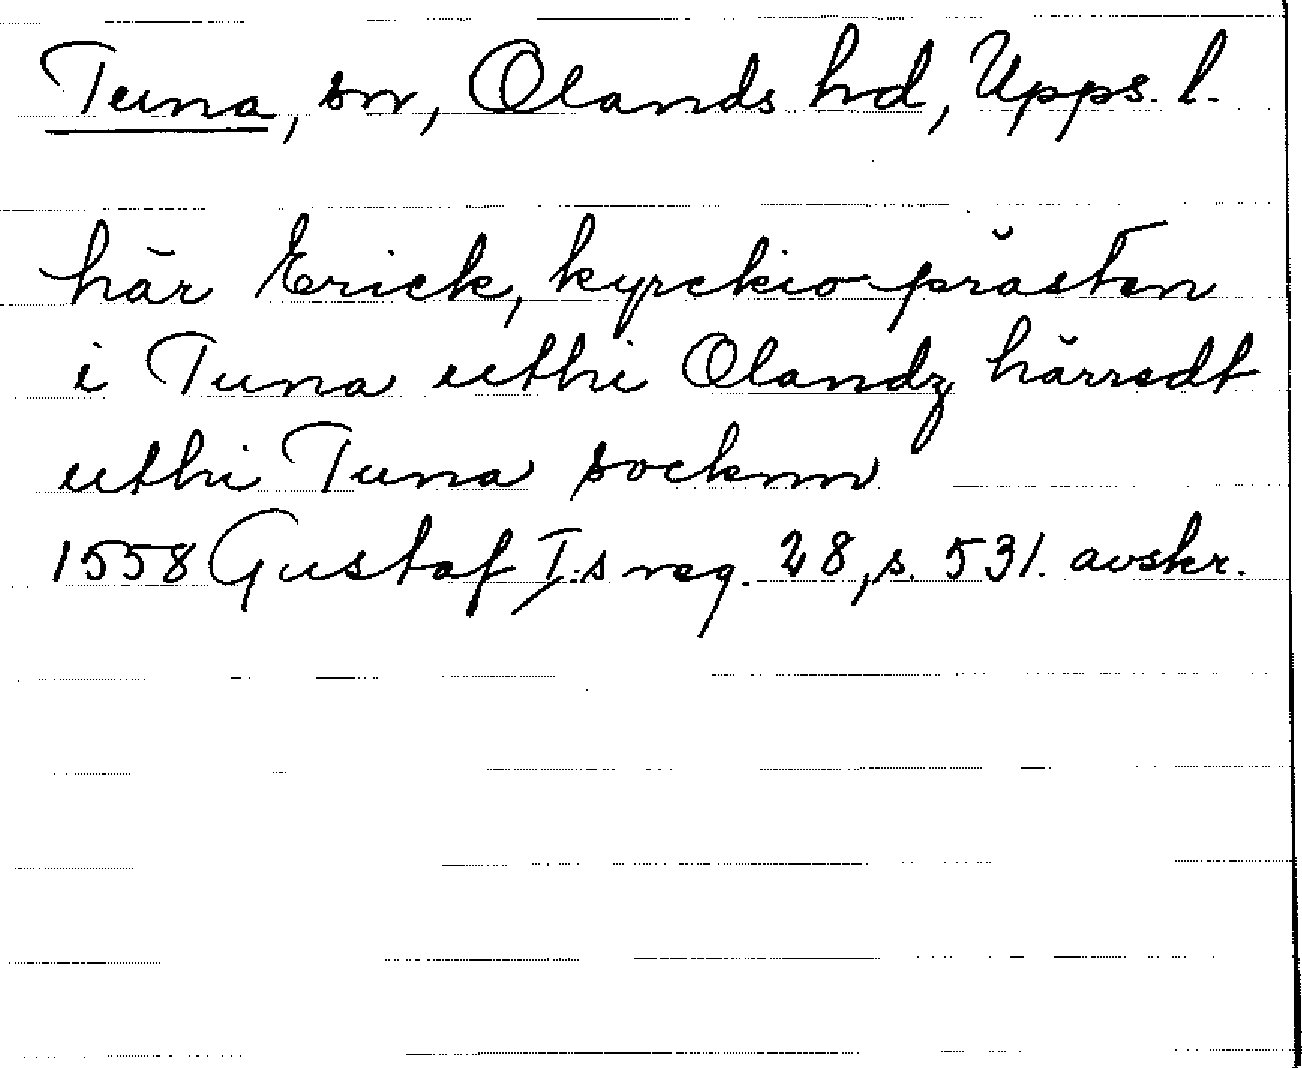 Tuna, sn, Olands hd, Upps. l.
här Erick, kyrckio prästen
i Tuna uthi Olandz härredt
uthi Tuna socknn
1558 Gustaf I:s reg. 28, s. 531. avskr.